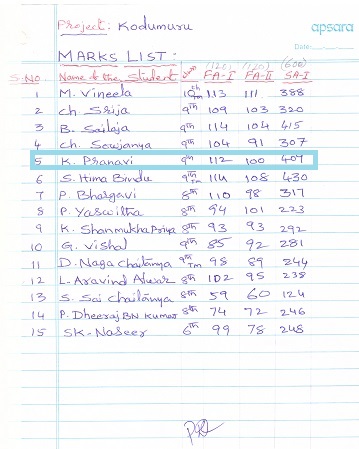 Project: Kodumuru
apsara
Date:
MARKS LIST:
(120) (120) (600)
S.NO. Name of the Student FA-I FA-II SA-I
1 M. Vineela 10th TM 113 111 388
2 Ch Srija 9th 109 103 320
3 B. Sailaja 9th 114 104 415
4 Ch. Sowjanya 9th 104 91 307
5 K. Pranavi 9th 112 100 407
6 S. Hima Bindu 9th TM 114 108 430
7 P. Bhargavi 8th 110 98 317
8 P. Yaswitha 8th 94 101 223
9 K. Shanmukha Priya 8th 93 93 292
10 G. Vishal 9th 85 92 281
11 D. Naga Chaitanya 9th TM 98 89 244
12 L. Aravind 8th 102 95 238
13 S. Sai Chaitanya 8th 59 60 124
14 P. Dheeraj BN Kumar 8th 74 72 246
15 SK. Naseer 6th 99 78 248